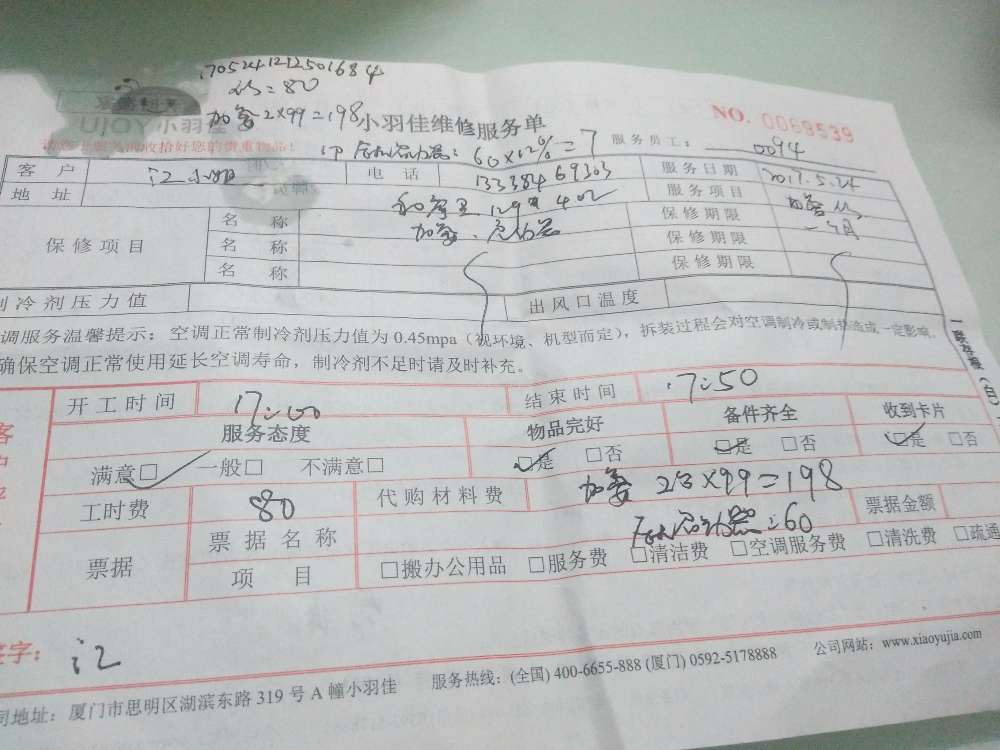 1705241212501684
=80
加 2×99=198
UJOY 小羽佳
小羽佳维修服务单
NO. 0069539
60×12%=7
服务员工： 0094
客户 江小姐 电话 13338469303 服务日期 2017.5.24
地址 129 402 服务项目 加
保修项目 名称 加 保修期限 一个月
名称 保修期限
名称 保修期限
制冷剂压力值 出风口温度
调服务温馨提示：空调正常制冷剂压力值为0.45mpa（视环境、机型而定），拆装过程会对空调制冷或制热造成一定影响，
确保空调正常使用延长空调寿命，制冷剂不足时请及时补充。
一联存根（白）
开工时间 17:00 结束时间 17:50
服务态度 物品完好 备件齐全 收到卡片
满意□ 一般□ 不满意□ □是 □否 □是 □否 □是 □否
工时费 80 代购材料费 加 ×99=198
:60 票据金额
票据 票据名称
项目 □搬办公用品 □服务费 □清洁费 □空调服务费 □清洗费 □疏通
签字： 江
司地址：厦门市思明区湖滨东路319号A幢小羽佳 服务热线：(全国) 400-6655-888 (厦门) 0592-5178888 公司网站：www.xiaoyujia.com